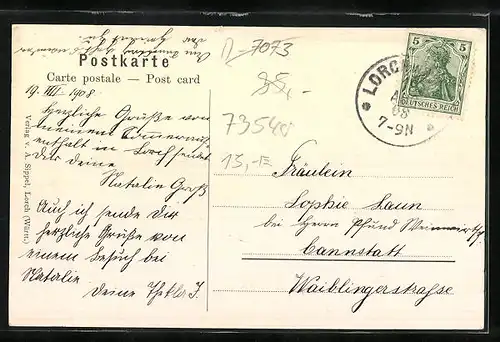 Postkarte
Carte postale — Post card
19. VIII 1908
Herzliche Grüße von
meinem Sommerauf
enthalt in Lorch sendet
Dir deine
Natalie Groß
Auch ich sende dir
herzliche Grüße von
einem Besuch bei
Natalie
Deine Thekla J.
Verlag v. A. Sippel, Lorch (Württ.)
7073
85,-
73540
13,-E
LORCH
08
7-8N
5 5
DEUTSCHES REICH
Fräulein
Sophie Laun
bei Herrn Pfund
Cannstatt
Waiblingerstraße